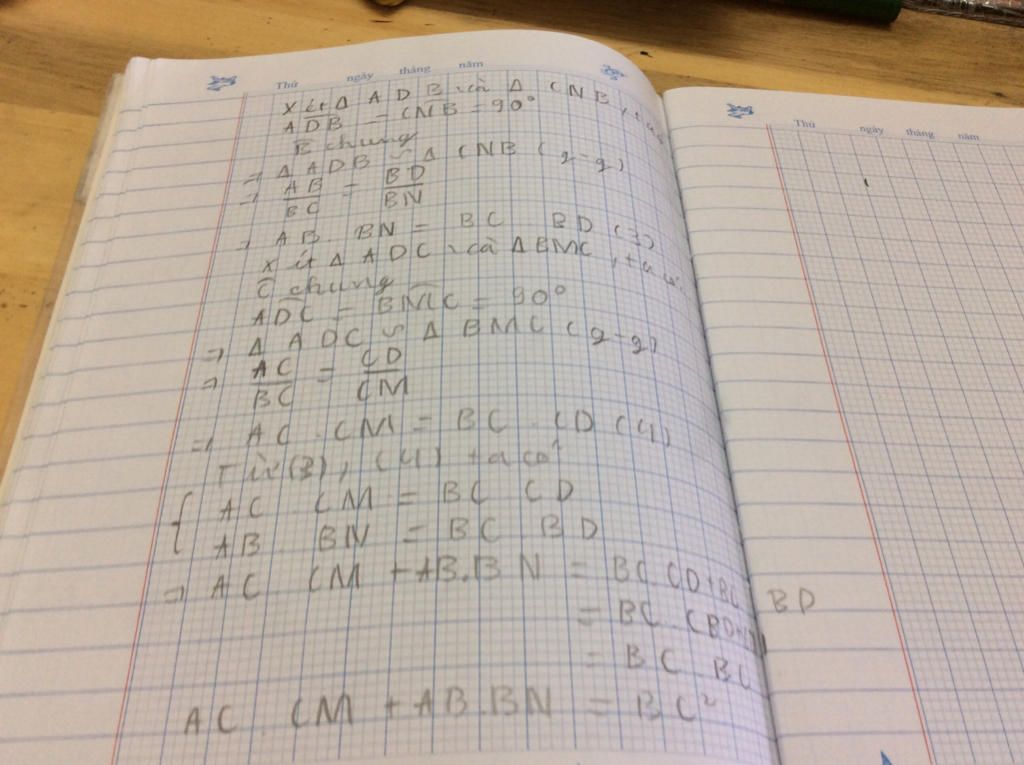 Thứ ngày tháng năm
Xét Δ ADB và Δ CNB, ta có
ADB = CNB = 90°
B chung
=> Δ ADB ∽ Δ CNB (g-g)
=> AB/BC = BD/BN
=> AB . BN = BC . BD (3)
Xét Δ ADC và Δ BMC, ta có
C chung
ADC = BMC = 90°
=> Δ ADC ∽ Δ BMC (g-g)
=> AC/BC = CD/CM
=> AC . CM = BC . CD (4)
Từ (3), (4) ta có
{ AC . CM = BC . CD
AB . BN = BC . BD
=> AC . CM + AB.BN = BC.CD+BC.BD
= BC.(BD+CD)
= BC . BC
AC . CM + AB.BN = BC²
Thứ ngày tháng năm